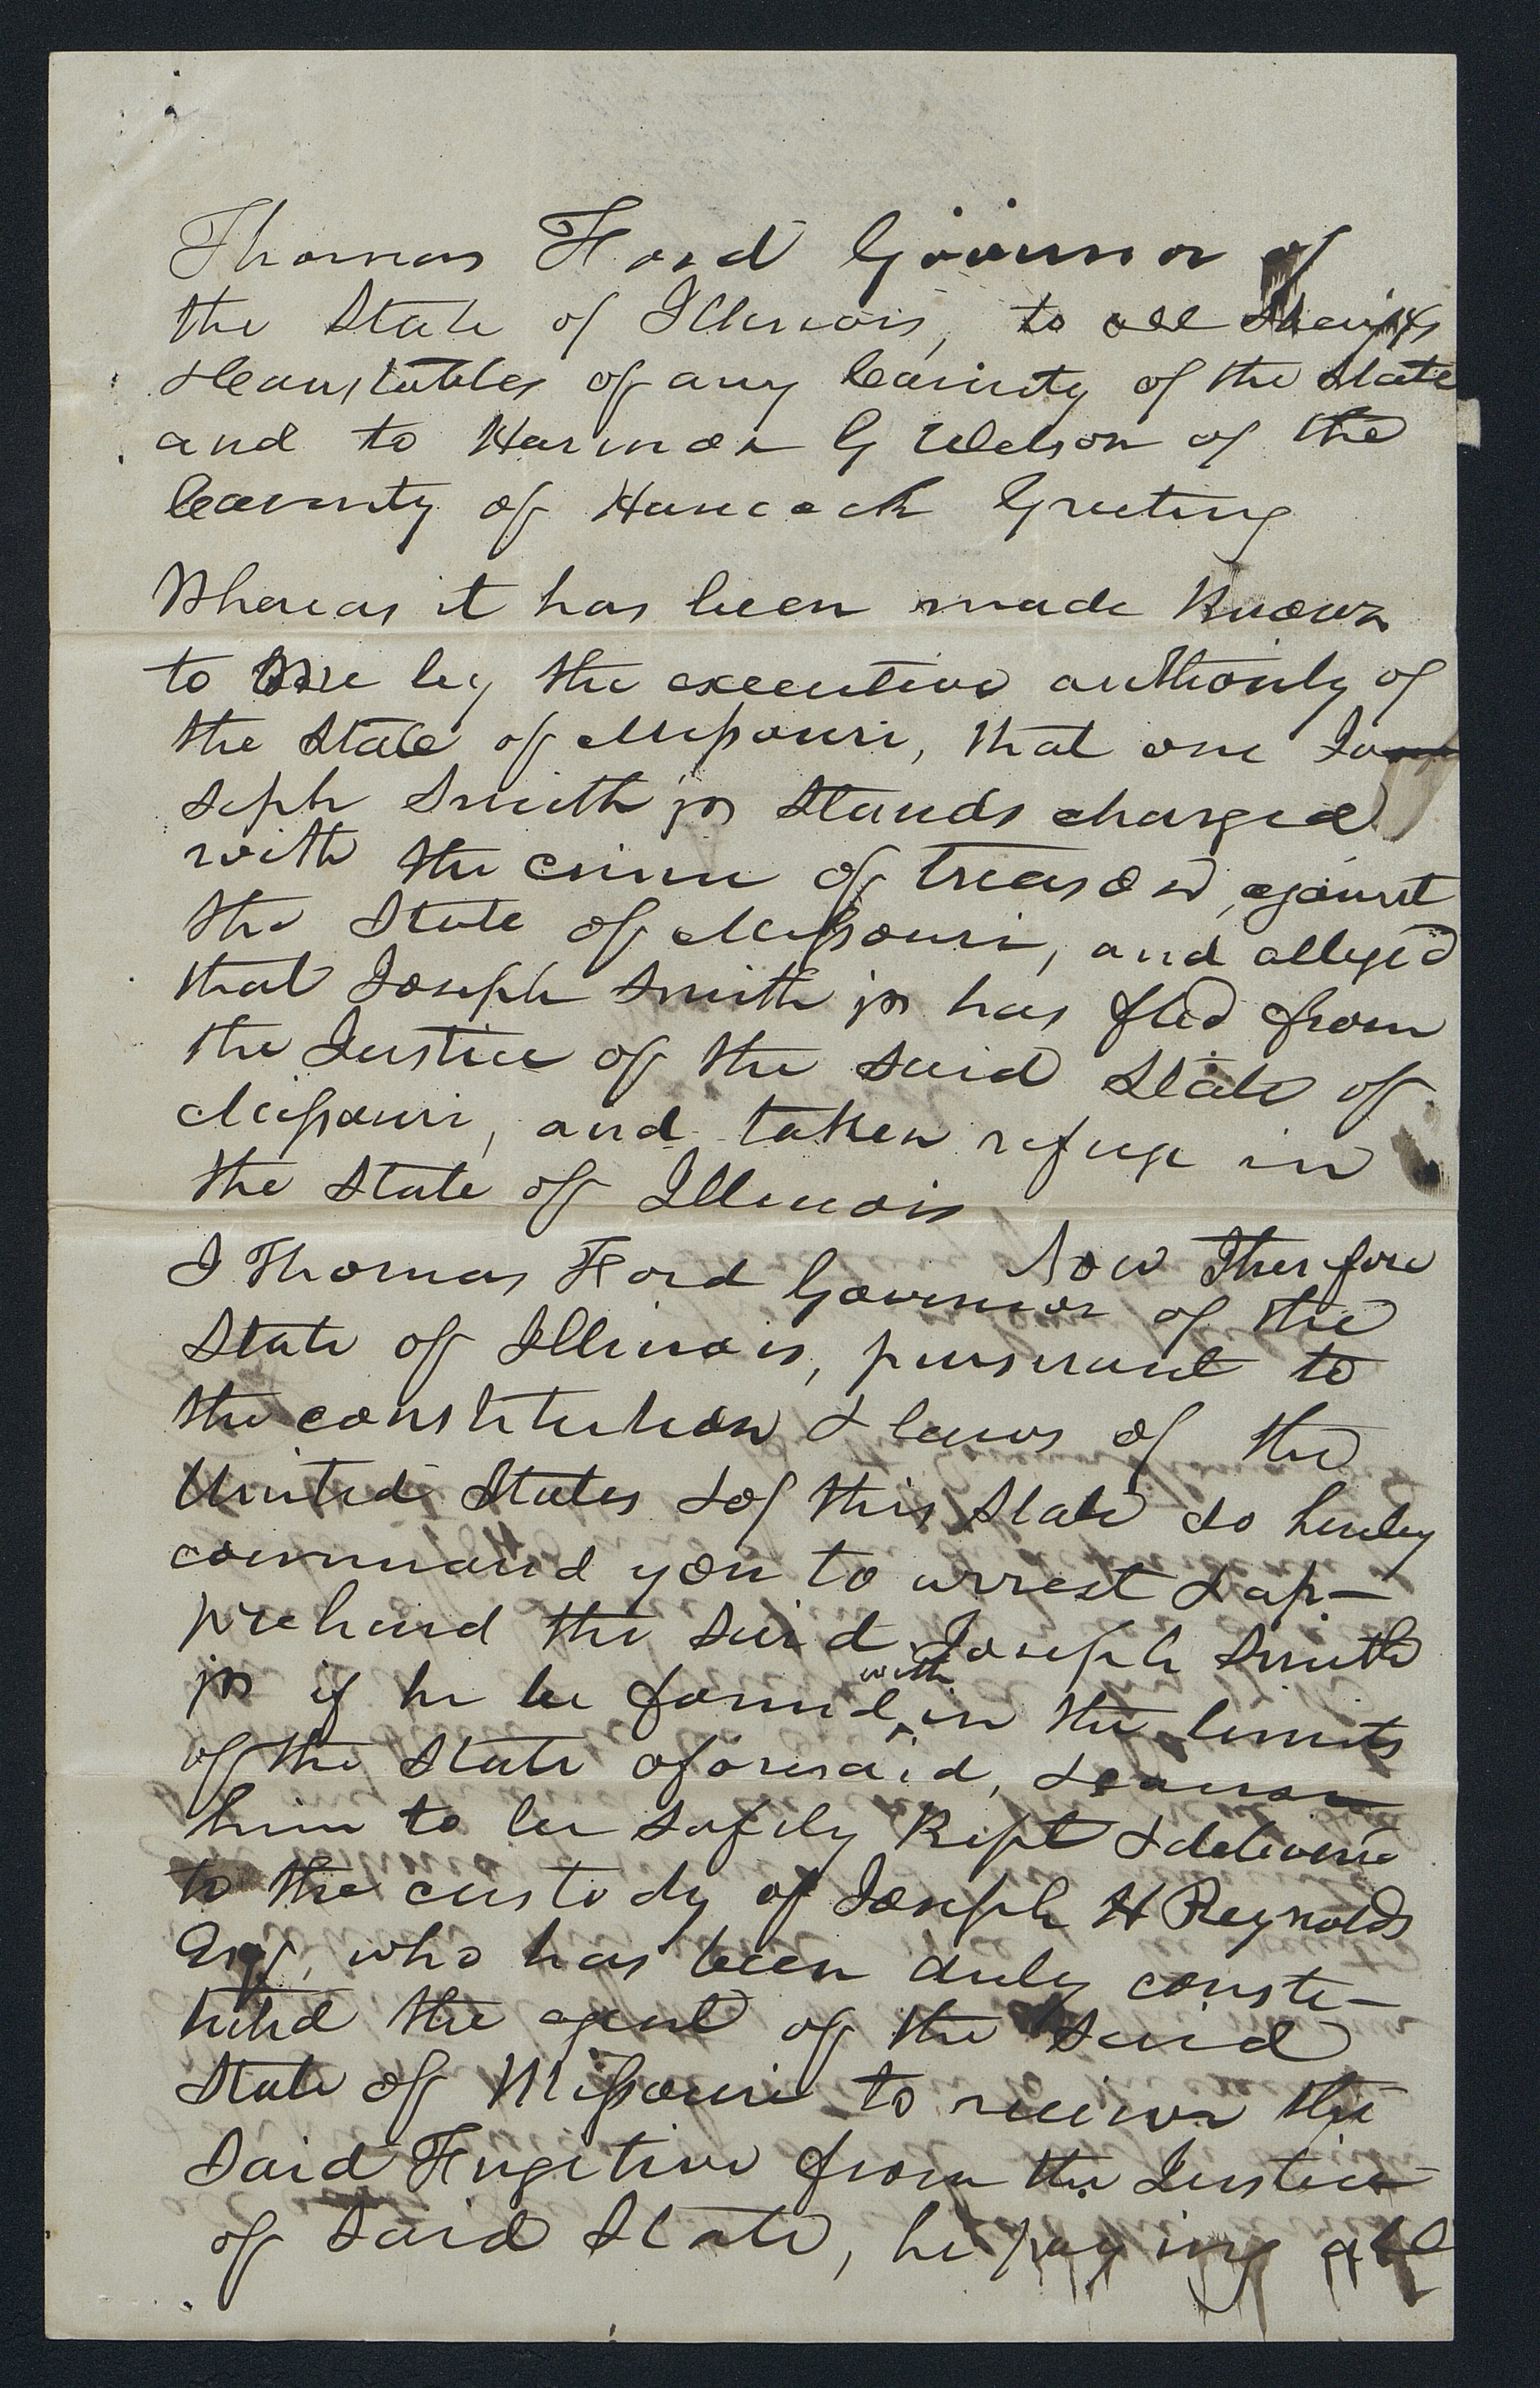 Thomas Ford Governor of
the State of Illinois, to all Sheriffs
& Constables of any County of the State
and to Harmon G Wilson of the
County of Hancock Greeting
Whereas it has been made Known
to me by the executive authority of
the State of Missouri, that one Jo
seph Smith jr Stands charged
with the crime of treason, against
the State of Missouri, and alleged
that Joseph Smith jr has fled from
the Justice of the said State of
Missouri, and taken refuge in
the State of Illinois
Now Therefore
I Thomas Ford Governor of the
State of Illinois, pursuant to
the constitution & laws of the
United States & of this State do hereby
command you to arrest & ap-
prehend the said Joseph Smith
jr if he be found within the limits
of the State aforesaid, & cause
him to be safely Kept & delivered
to the custody of Joseph H Reynolds
Esqr, who has been duly consti-
tuted the agent of the said
State of Missouri to receive the
said Fugitive from the Justice
of said State, he paying all